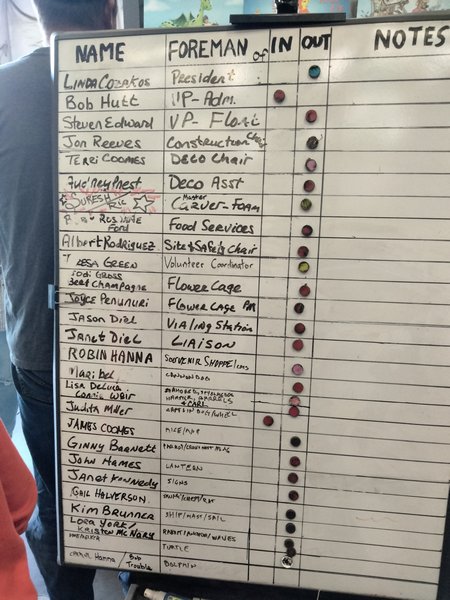 NAME FOREMAN of IN OUT NOTES
LINDA COZAKOS President
Bob Hutt VP-Adm.
Steven Edward VP-Floral
Jon Reeves Construction
TERRI COOMES DECO Chair
DECO Asst
SURESH RIC Master CARVER-FOAM
Ford Food Services
Albert Rodriguez Site & Safety Chair
TERESA GREEN Volunteer Coordinator
Jodi GROSS
Beat Champagne Flower Cage
Joyce Penunuri Flower CAGE
JASON Diel Vialing Station
Janet Diel LIAISON
ROBIN HANNA SOUVENIR SHOPPE/
Maribel CANNON
LISA DeLuca
Connie Weir HAMMER, BARRELS
Judith Miller CAPTAIN DOG/WHEEL
JAMES COOMES MICE/MAP
Ginny Barnett
John Hames LANTERN
Janet Kennedy SIGNS
GAIL HALVERSON
Kim BRUNNER SHIP/MAST/SAIL
Lora York/
Kristen McNary /WAVES
TURTLE
Hanna/ Bob
Trouble DOLPHIN